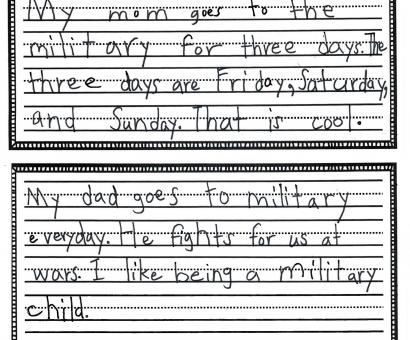 My mom goes to the
military for three days. The
three days are Friday, Saturday,
and Sunday. That is cool.
My dad goes to military
everyday. He fights for us at
wars. I like being a military
child.